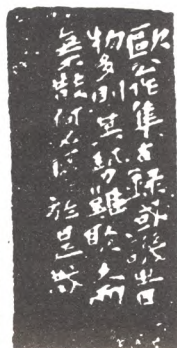 歐公作集古録或譏
物多則其勢難聚久而
無散何必區於是哉